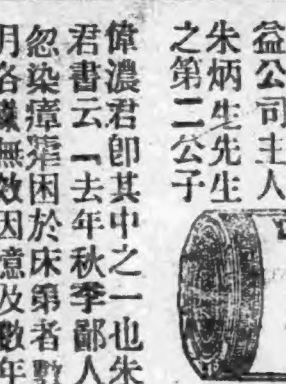 益公司主人
朱炳生先生
之第二公子
偉濃君卽其中之一也朱
君書云「去年秋季鄙人
忽染瘴瘧困於床第者數
月各無效因意及數年